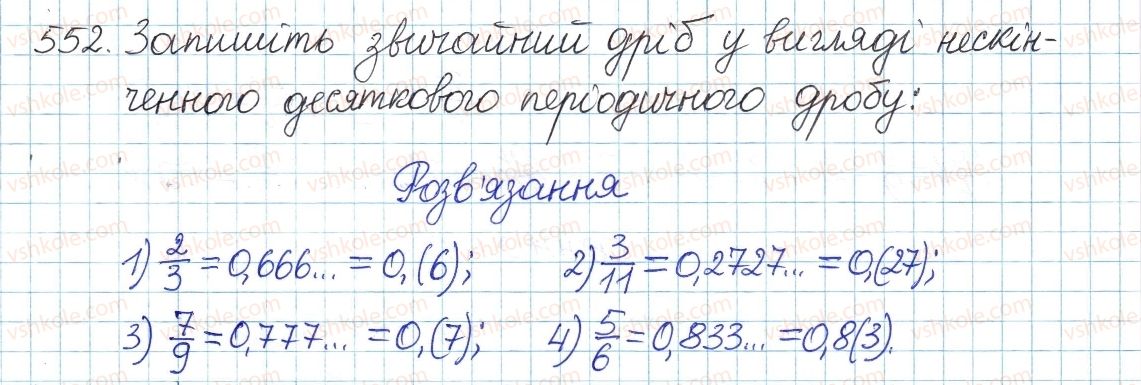 552. Запишіть звичайний дріб у вигляді нескін-
ченного десяткового періодичного дробу:
Розв'язання
1) 2/3 = 0,666... = 0,(6); 2) 3/11 = 0,2727... = 0,(27);
3) 7/9 = 0,777... = 0,(7); 4) 5/6 = 0,833... = 0,8(3).